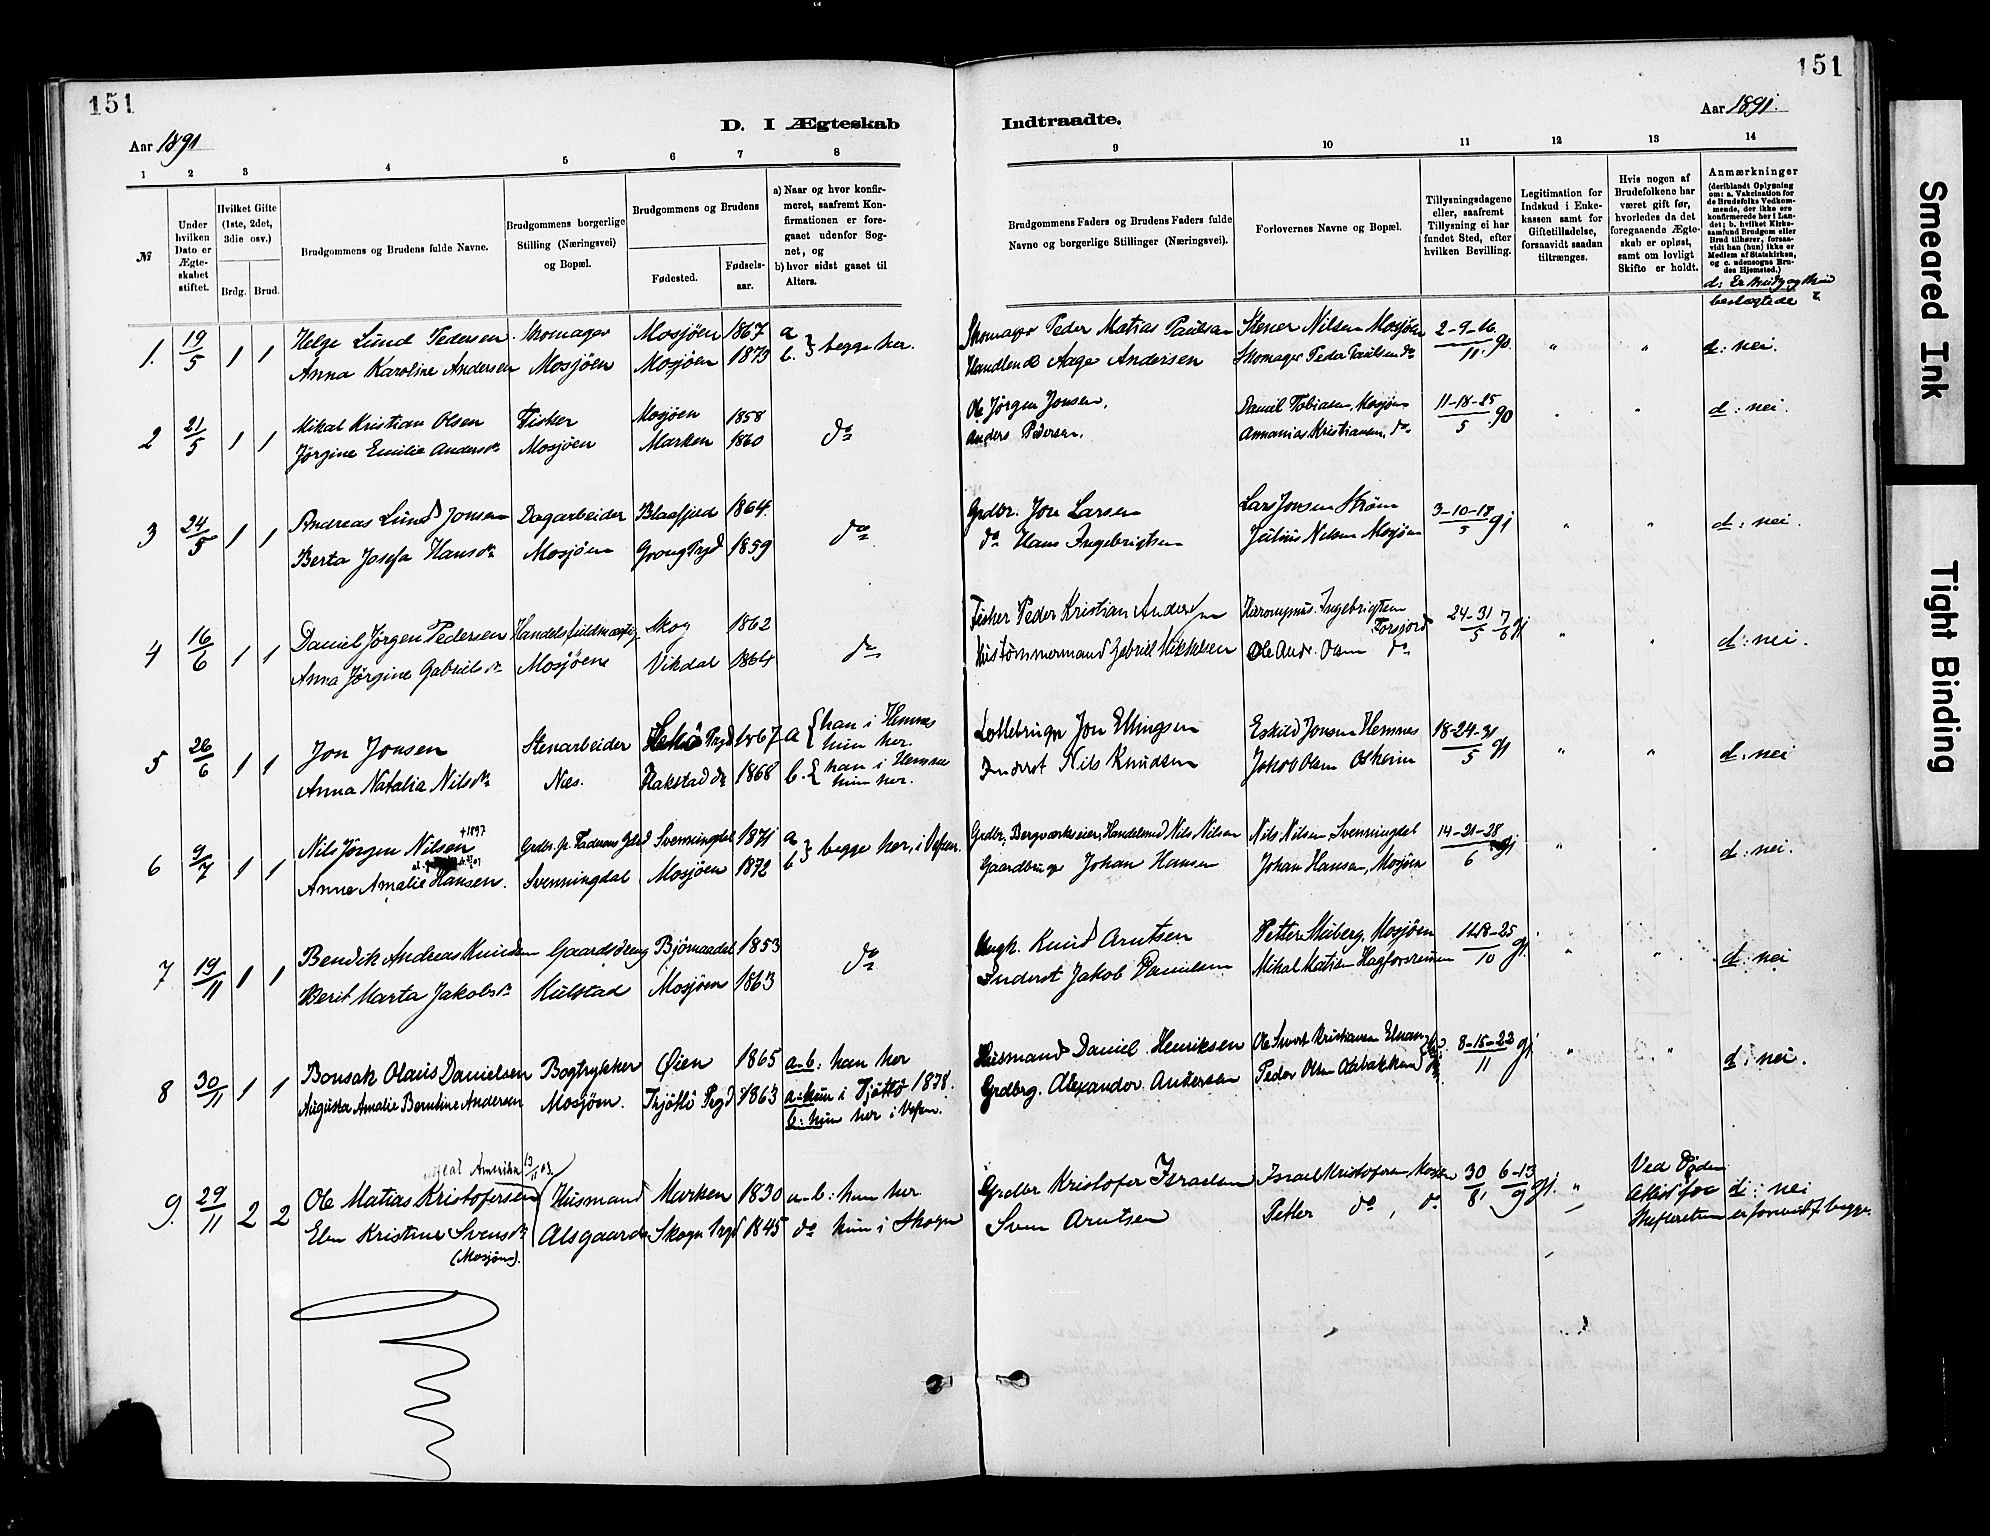 151
151
Aar 1891
D. I Ægteskab Indtraadte.
Aar 1891.
1 2 3 4 5 6 7 8 9 10 11 12 13 14
№
Under hvilken Dato er Ægteskabet stiftet.
Hvilket Gifte (1ste, 2det, 3die osv.)
Brdg. Brud.
Brudgommens og Brudens fulde Navne.
Brudgommens borgerlige Stilling (Næringsvei) og Bopæl.
Brudgommens og Brudens
Fødested. Fødselsaar.
a) Naar og hvor konfirmeret, saafremt Konfirmationen er foregaaet udenfor Sognet, og
b) hvor sidst gaaet til Alters.
Brudgommens Faders og Brudens Faders fulde Navne og borgerlige Stillinger (Næringsvei).
Forlovernes Navne og Bopæl.
Tillysningsdagene eller, saafremt Tillysning ei har fundet Sted, efter hvilken Bevilling.
Legitimation for Indskud i Enkekassen samt for Giftetilladelse, forsaavidt saadan tiltrænges.
Hvis nogen af Brudefolkene har været gift før, hvorledes da det foregaaende Ægteskab er opløst, samt om lovligt Skifte er holdt.
Anmærkninger
(deriblandt Oplysning om: a. Vakcination for de Brudefolks Vedkommende, der ikke ere konfirmerede her i Landet; b. hvilket Kirkesamfund Brudgom eller Brud tilhører, forsaavidt han (hun) ikke er Medlem af Statskirken, og c. udensogns Brudes Hjemsted.)
beslægtede
1. 19/5 1 1 Helge Lund Pedersen Skomager Mosjöen 1867 a } begge her. Skomager Peder Matias Paulsen Stener Nilsen Mosjöen 2-9-16/11 " " d: nei.
Anna Karoline Andersen Mosjöen Mosjöen 1873 b. Handlende Aage Andersen Skomager Peder Paulsen do
2 21/5 1 1 Mikal Kristian Olsen Fisker Mosjöen 1858 do Ole Jörgen Jonsen. Daniel Tobiasen, Mosjöen 11-18-25/5 " " d: nei.
Jörgine Emilie Andersdr Mosjöen Marken 1860 Anders Pedersen. Annanias Kristiansen, do
3 24/5 1 1 Andreas Lund Jonsen Dagarbeider Blaafjeld 1864 do Grdbr. Jon Larsen Lars Jonsen Ström 3-10-18/5 gj " " d: nei.
Berta Josefa Hansdr Mosjöen Grong Prgd 1859 do Hans Ingebrigtsen Julius Nilsen Mosjöen
4 16/6 1 1 Daniel Jörgen Pedersen Handelsfuldmægtig Skog 1862 do Fisker Peder Kristian Andersen Hieronymus Ingebrigtsen Forsjord 24-31/5 7/6 gj " " d: nei.
Anna Jörgine Gabrielsdr Mosjöen Vikdal 1864 Hustömmermand Gabriel Mikkelsen Ole Andr. Olsen do
5 26/6 1 1 Jon Jonsen Stenarbeider Prgd 1867 a { han i Hemnes hun her. Jon Ellingsen Eskild Jonsen Hemnes 18-24-31/5 gj " " d: nei
Anna Natalia Nilsdr Næs. Hakstad do 1868 b. { han i Hemnes hun her. Inderst Nils Knudsen Jakob Olsen
6 9/7 1 1 Nils Jörgen Nilsen +1897 Svenningdal 1871 a } begge her, i Vefsen. Grdbr, Bergværkseier, Handelsmd Nils Nilsen Nils Nilsen, Svenningdal 14-21-28/6 gj " " d: nei.
Anne Amalie Hansen. Svenningdal Mosjöen 1872 b Gaardbruger Johan Hansen Johan Hansen, Mosjöen
7 19/11 1 1 Bendik Andreas Knudsen Gaardsdreng Björnaadal 1853 do Ungk. Knud Arntsen Petter Stiberg, Mosjöen 11-18-25/10 gj. " " d: nei
Berit Marta Jakobsdr Kulstad Mosjöen 1863 Inderst Jakob Danielsen Mikal Matisen Hagforsreinen
8 30/11 1 1 Bonsak Olaus Danielsen Bogtrykker Øien 1865 a-b: han her Husmand Daniel Henriksen Ole Kristiansen 8-15-22/11 gj " " d: nei.
Augusta Amalie Berntine Andersen Mosjöen. Tjöttö Prgd 1863 a: hun i Tjöttö 1878. Grdbrg. Alexander Andersen Peder Olsen
b: hun her i Vefsn.
Amerika 13/11 03.
9. 29/11 2 2 Ole Matias Kristofersen Husmand Marken 1830 a-b: han her Grdbr Kristofer Israelsen Israel Kristofersen 30/8 6-13/9 gj. " Ved Døden d: nei
Elen Kristine Svensdr Alsgaarden Skogn Prgd 1845 do hun i Skogn Sven Arntsen Petter do, do
(Mosjöen).